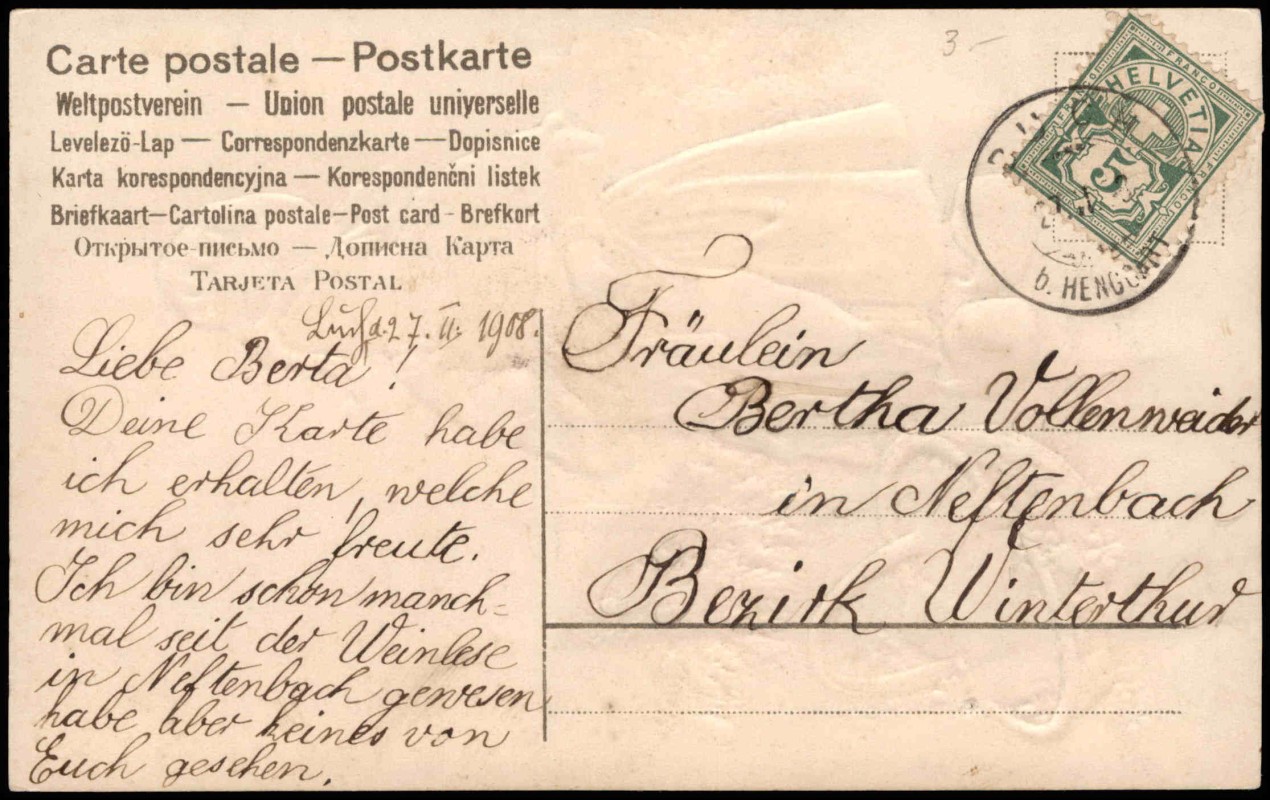 Carte postale — Postkarte
Weltpostverein — Union postale universelle
Levelezö-Lap — Correspondenzkarte — Dopisnice
Karta korespondencyjna — Korespondenčni listek
Briefkaart — Cartolina postale — Post card - Brefkort
Открытое-письмо — Дописна Карта
TARJETA POSTAL
3 –
FRANCO HELVETIA FRANCO
5
b. HENGGART
27. II. 1908.
Liebe Berta!
Deine Karte habe
ich erhalten, welche
mich sehr freute.
Ich bin schon manch=
mal seit der Weinlese
in Neftenbach gewesen
habe aber keines von
Euch gesehen.
Fräulein
Bertha Vollenweider
in Neftenbach
Bezirk Winterthur